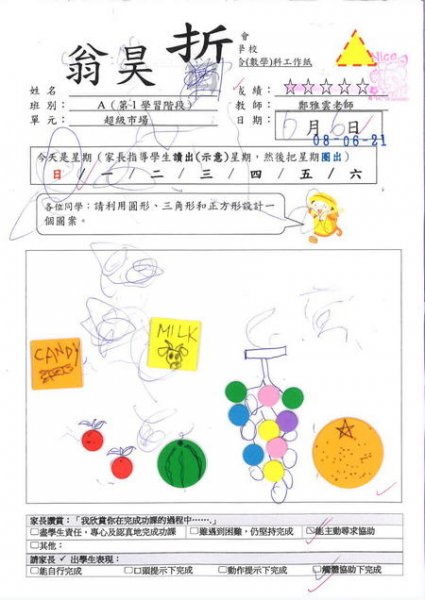 翁昊折
會
學校
(數學)科工作紙
Nice
姓名
成績：☆☆☆☆☆
班別： A（第1學習階段）
教師： 鄭雅雲老師
單元： 超級市場
日期： 6月6日
08-06-21
今天是星期（家長指導學生讀出(示意)星期，然後把星期圈出）
日 / 一 二 三 四 五 六
各位同學：請利用圓形、三角形和正方形設計一
個圖案。
CANDY
MILK
家長讚賞：「我欣賞你在完成功課的過程中……」
□盡學生責任，專心及認真地完成功課 □雖遇到困難，仍堅持完成 ☑能主動尋求協助
□其他：
請家長 ✓ 出學生表現：
□能自行完成 □口頭提示下完成 □動作提示下完成 ☑觸體協助下完成